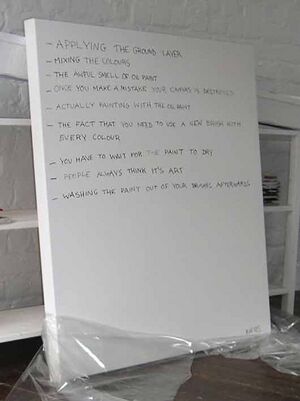 - APPLYING THE GROUND LAYER
- MIXING THE COLOURS
- THE AWFUL SMELL OF OIL PAINT
- ONCE YOU MAKE A MISTAKE YOUR CANVAS IS DESTROYED
- ACTUALLY PAINTING WITH THE OIL PAINT
- THE FACT THAT YOU NEED TO USE A NEW BRUSH WITH
EVERY COLOUR
- YOU HAVE TO WAIT FOR THE PAINT TO DRY
- PEOPLE ALWAYS THINK IT'S ART
- WASHING THE PAINT OUT OF YOUR BRUSHES AFTERWARDS